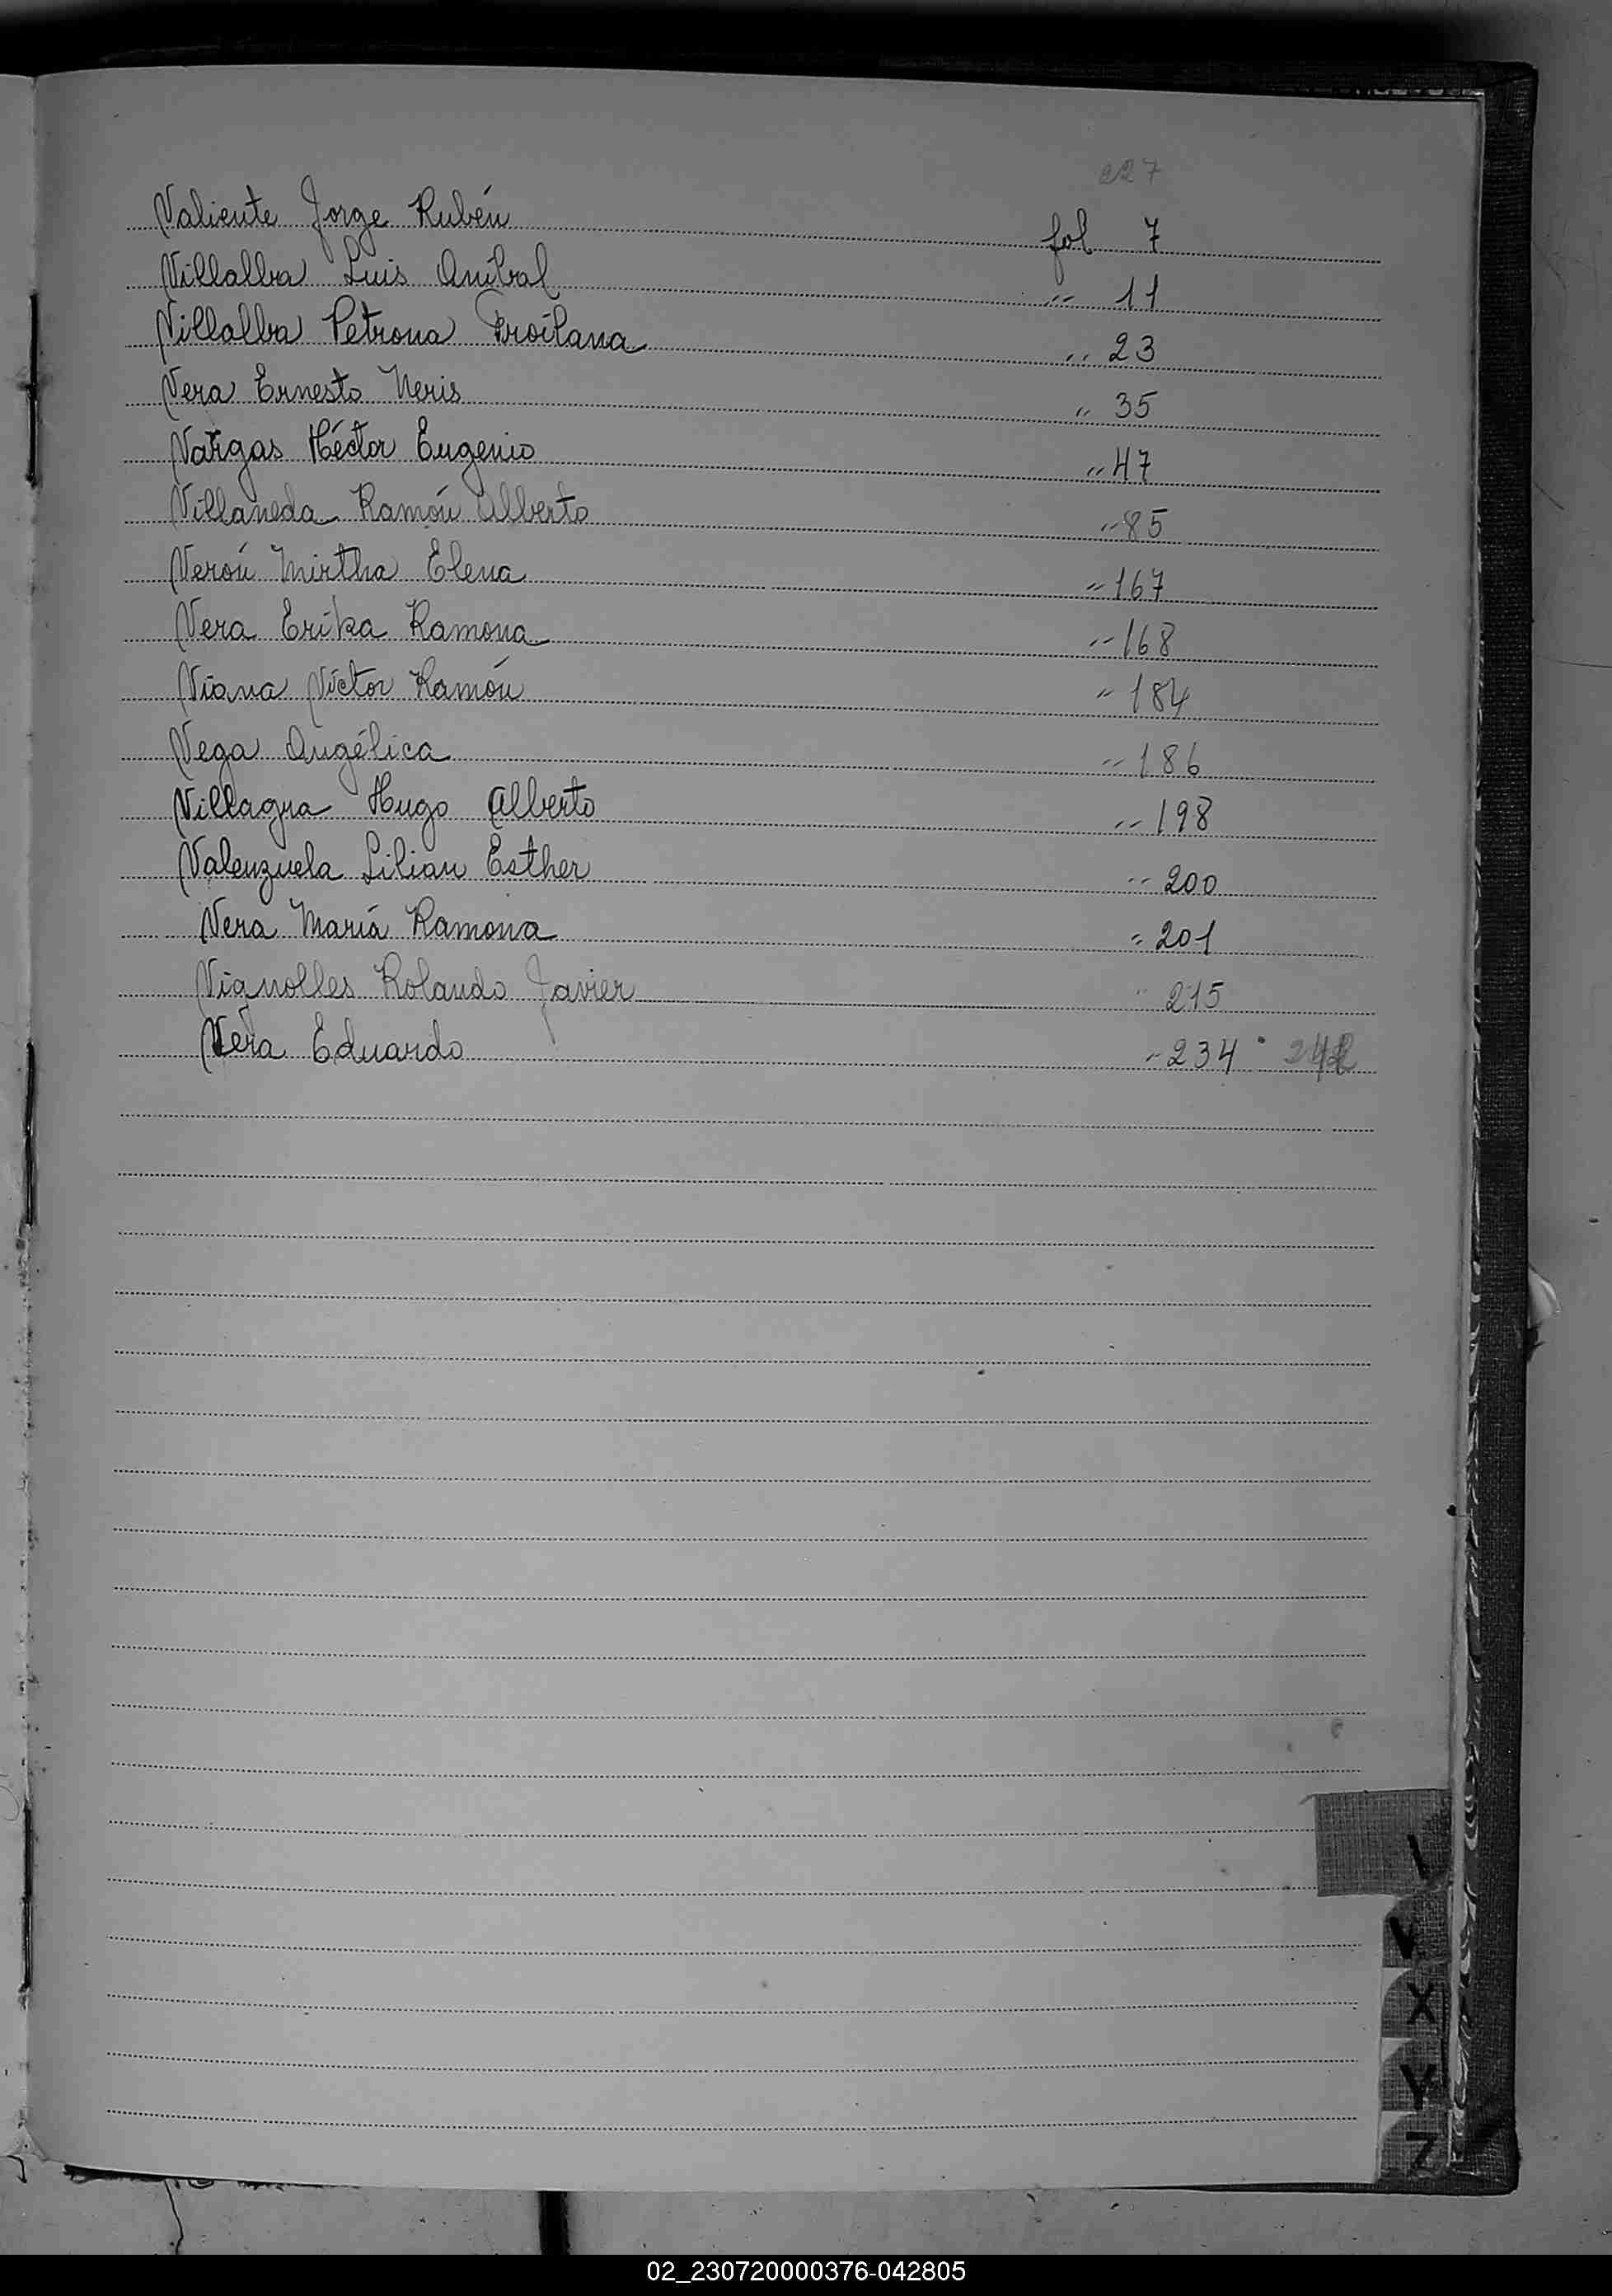 227
Valiente Jorge Rubén fol 7
Villalba Luis Aníbal -- 11
Villalba Petrona Froilana -- 23
Vera Ernesto Neris -- 35
Vargas Héctor Eugenio -- 47
Villaneda Ramón Alberto -- 85
Verón Mirtha Elena -- 167
Vera Erika Ramona -- 168
Viana Víctor Ramón -- 184
Vega Angélica -- 186
Villagra Hugo Alberto -- 198
Valenzuela Lilian Esther -- 200
Vera María Ramona -- 201
Vignolles Rolando Javier -- 215
Vera Eduardo -- 234
V
X
Y
Z
02_230720000376-042805